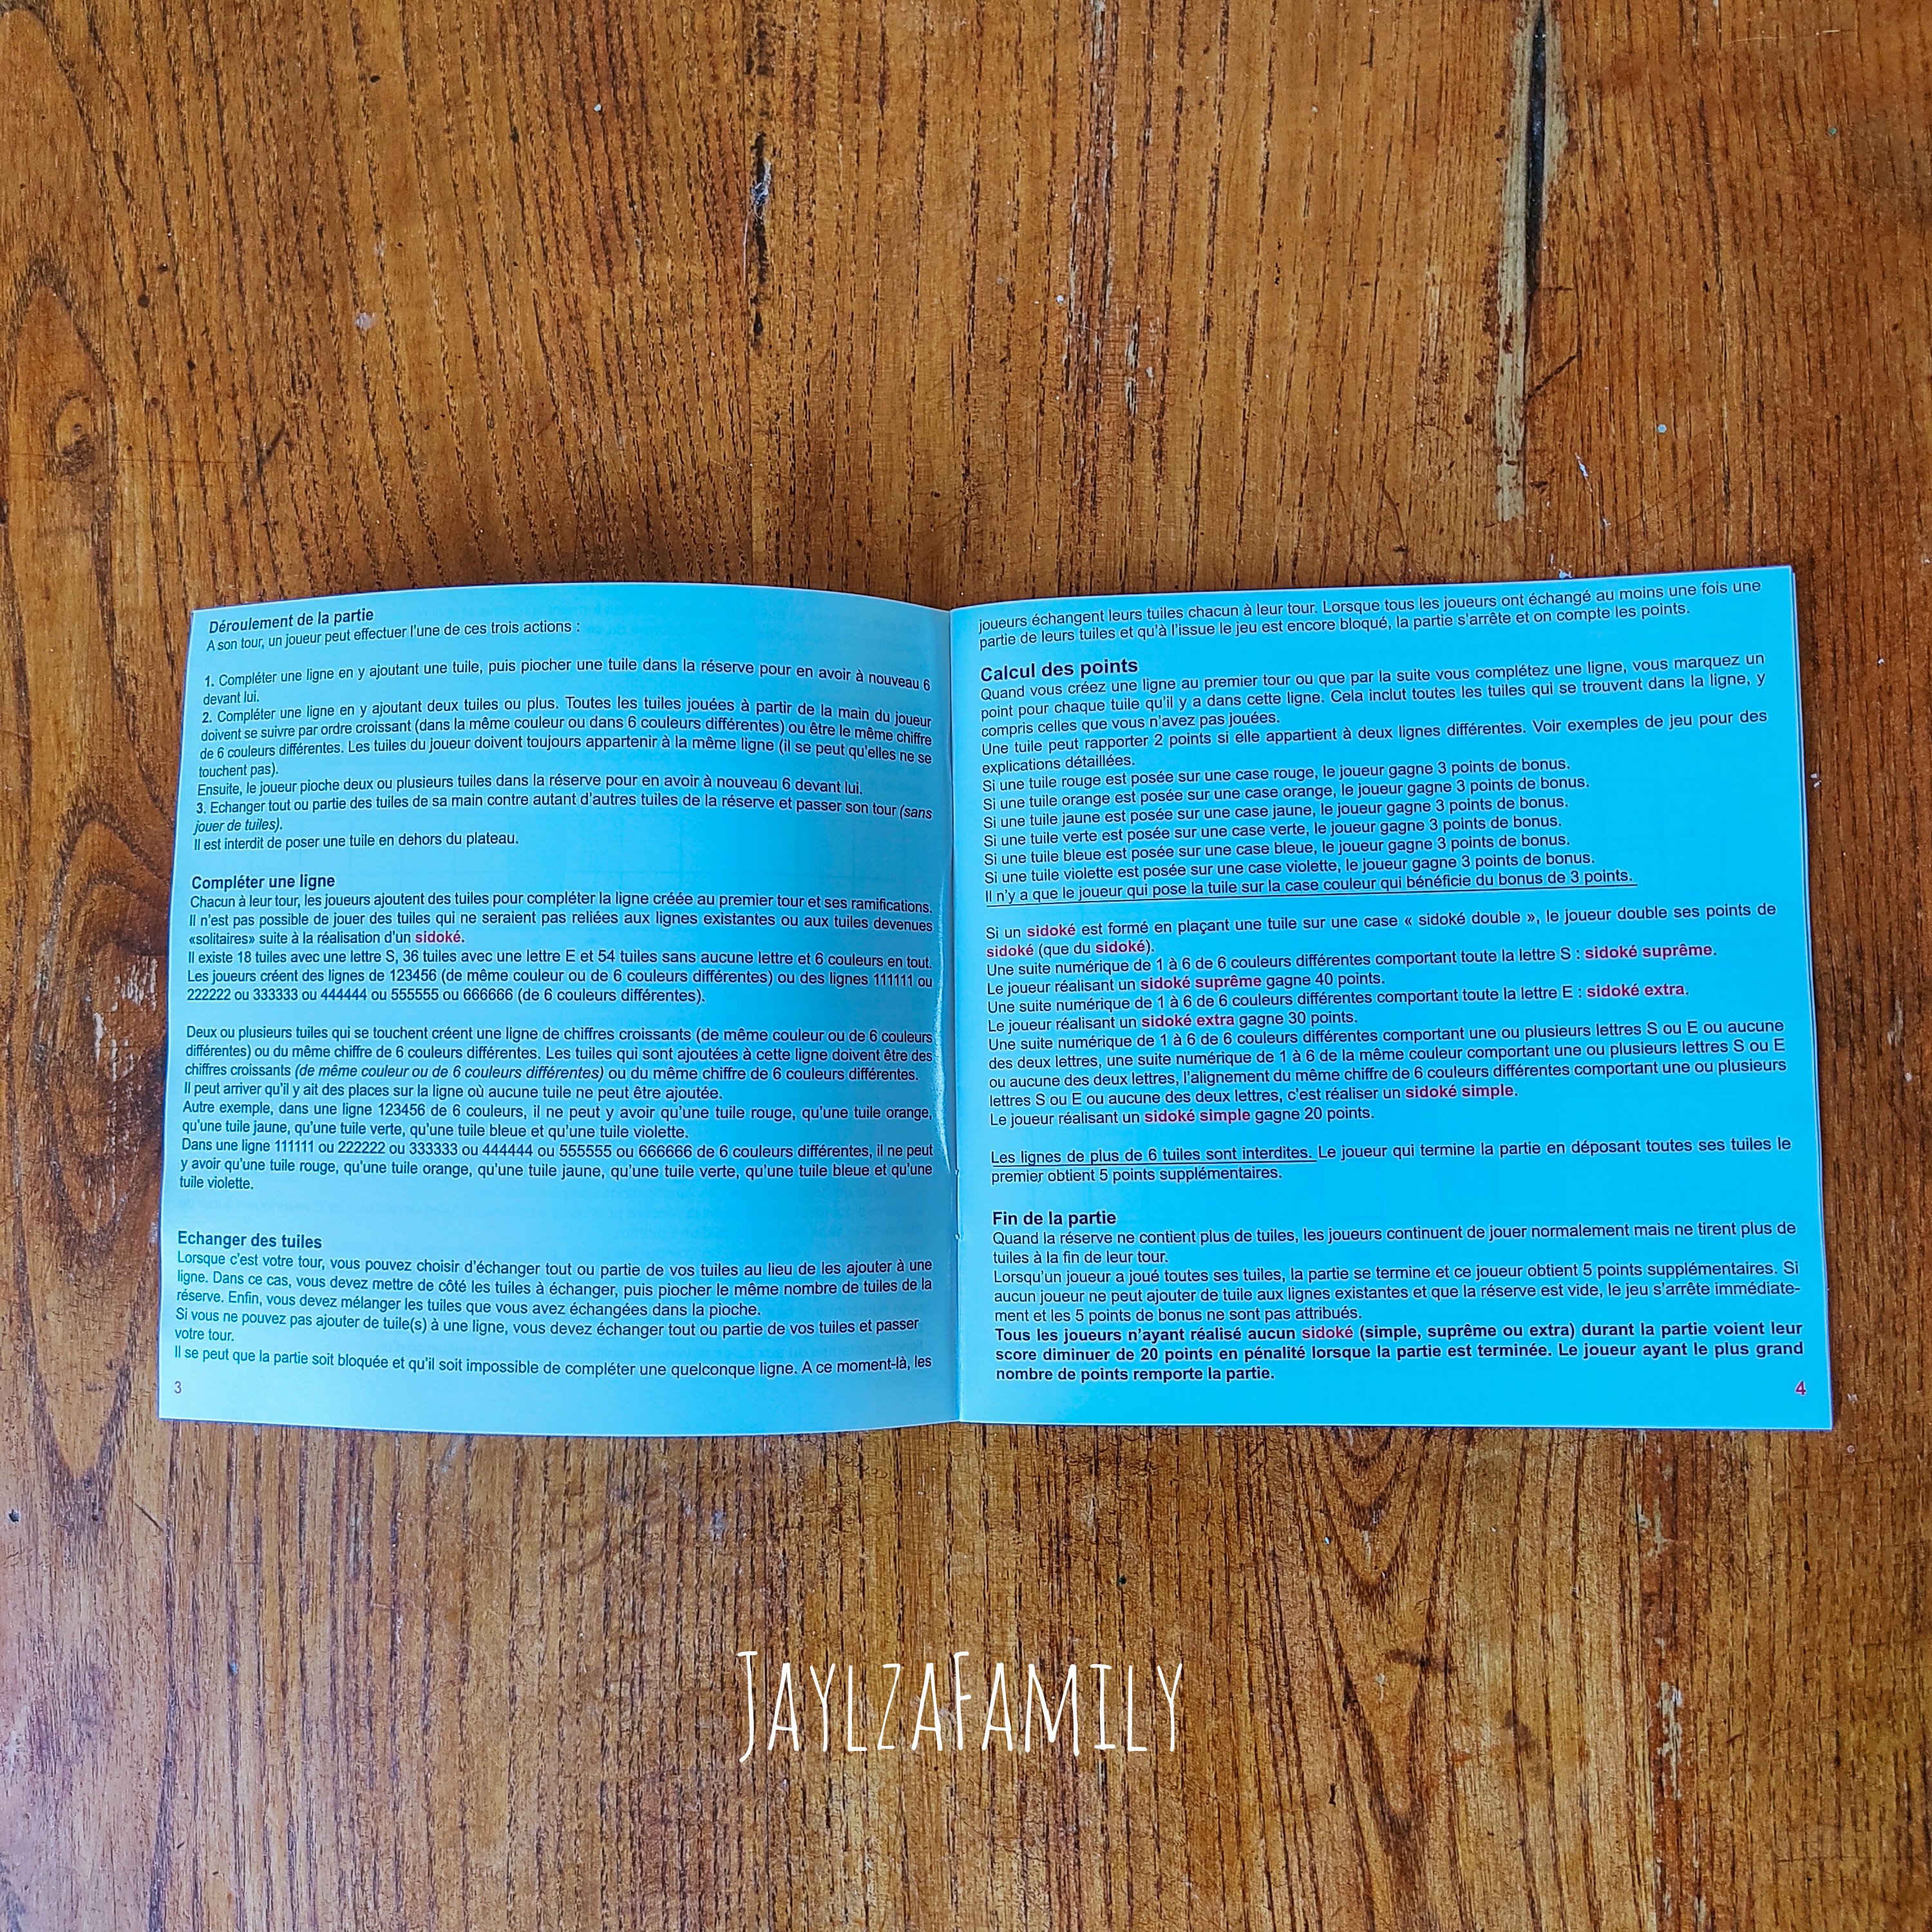 Déroulement de la partie
A son tour, un joueur peut effectuer l'une de ces trois actions :
1. Compléter une ligne en y ajoutant une tuile, puis piocher une tuile dans la réserve pour en avoir à nouveau 6
devant lui.
2. Compléter une ligne en y ajoutant deux tuiles ou plus. Toutes les tuiles jouées à partir de la main du joueur
doivent se suivre par ordre croissant (dans la même couleur ou dans 6 couleurs différentes) ou être le même chiffre
de 6 couleurs différentes. Les tuiles du joueur doivent toujours appartenir à la même ligne (il se peut qu'elles ne se
touchent pas).
Ensuite, le joueur pioche deux ou plusieurs tuiles dans la réserve pour en avoir à nouveau 6 devant lui.
3. Echanger tout ou partie des tuiles de sa main contre autant d'autres tuiles de la réserve et passer son tour (sans
jouer de tuiles).
Il est interdit de poser une tuile en dehors du plateau.
Compléter une ligne
Chacun à leur tour, les joueurs ajoutent des tuiles pour compléter la ligne créée au premier tour et ses ramifications.
Il n'est pas possible de jouer des tuiles qui ne seraient pas reliées aux lignes existantes ou aux tuiles devenues
«solitaires» suite à la réalisation d'un sidoké.
Il existe 18 tuiles avec une lettre S, 36 tuiles avec une lettre E et 54 tuiles sans aucune lettre et 6 couleurs en tout.
Les joueurs créent des lignes de 123456 (de même couleur ou de 6 couleurs différentes) ou des lignes 111111 ou
222222 ou 333333 ou 444444 ou 555555 ou 666666 (de 6 couleurs différentes).
Deux ou plusieurs tuiles qui se touchent créent une ligne de chiffres croissants (de même couleur ou de 6 couleurs
différentes) ou du même chiffre de 6 couleurs différentes. Les tuiles qui sont ajoutées à cette ligne doivent être des
chiffres croissants (de même couleur ou de 6 couleurs différentes) ou du même chiffre de 6 couleurs différentes.
Il peut arriver qu'il y ait des places sur la ligne où aucune tuile ne peut être ajoutée.
Autre exemple, dans une ligne 123456 de 6 couleurs, il ne peut y avoir qu'une tuile rouge, qu'une tuile orange,
qu'une tuile jaune, qu'une tuile verte, qu'une tuile bleue et qu'une tuile violette.
Dans une ligne 111111 ou 222222 ou 333333 ou 444444 ou 555555 ou 666666 de 6 couleurs différentes, il ne peut
y avoir qu'une tuile rouge, qu'une tuile orange, qu'une tuile jaune, qu'une tuile verte, qu'une tuile bleue et qu'une
tuile violette.
Echanger des tuiles
Lorsque c'est votre tour, vous pouvez choisir d'échanger tout ou partie de vos tuiles au lieu de les ajouter à une
ligne. Dans ce cas, vous devez mettre de côté les tuiles à échanger, puis piocher le même nombre de tuiles de la
réserve. Enfin, vous devez mélanger les tuiles que vous avez échangées dans la pioche.
Si vous ne pouvez pas ajouter de tuile(s) à une ligne, vous devez échanger tout ou partie de vos tuiles et passer
votre tour.
Il se peut que la partie soit bloquée et qu'il soit impossible de compléter une quelconque ligne. A ce moment-là, les
3
joueurs échangent leurs tuiles chacun à leur tour. Lorsque tous les joueurs ont échangé au moins une fois une
partie de leurs tuiles et qu'à l'issue le jeu est encore bloqué, la partie s'arrête et on compte les points.
Calcul des points
Quand vous créez une ligne au premier tour ou que par la suite vous complétez une ligne, vous marquez un
point pour chaque tuile qu'il y a dans cette ligne. Cela inclut toutes les tuiles qui se trouvent dans la ligne, y
compris celles que vous n'avez pas jouées.
Une tuile peut rapporter 2 points si elle appartient à deux lignes différentes. Voir exemples de jeu pour des
explications détaillées.
Si une tuile rouge est posée sur une case rouge, le joueur gagne 3 points de bonus.
Si une tuile orange est posée sur une case orange, le joueur gagne 3 points de bonus.
Si une tuile jaune est posée sur une case jaune, le joueur gagne 3 points de bonus.
Si une tuile verte est posée sur une case verte, le joueur gagne 3 points de bonus.
Si une tuile bleue est posée sur une case bleue, le joueur gagne 3 points de bonus.
Si une tuile violette est posée sur une case violette, le joueur gagne 3 points de bonus.
Il n'y a que le joueur qui pose la tuile sur la case couleur qui bénéficie du bonus de 3 points.
Si un sidoké est formé en plaçant une tuile sur une case « sidoké double », le joueur double ses points de
sidoké (que du sidoké).
Une suite numérique de 1 à 6 de 6 couleurs différentes comportant toute la lettre S : sidoké suprême.
Le joueur réalisant un sidoké suprême gagne 40 points.
Une suite numérique de 1 à 6 de 6 couleurs différentes comportant toute la lettre E : sidoké extra.
Le joueur réalisant un sidoké extra gagne 30 points.
Une suite numérique de 1 à 6 de 6 couleurs différentes comportant une ou plusieurs lettres S ou E ou aucune
des deux lettres, une suite numérique de 1 à 6 de la même couleur comportant une ou plusieurs lettres S ou E
ou aucune des deux lettres, l'alignement du même chiffre de 6 couleurs différentes comportant une ou plusieurs
lettres S ou E ou aucune des deux lettres, c'est réaliser un sidoké simple.
Le joueur réalisant un sidoké simple gagne 20 points.
Les lignes de plus de 6 tuiles sont interdites. Le joueur qui termine la partie en déposant toutes ses tuiles le
premier obtient 5 points supplémentaires.
Fin de la partie
Quand la réserve ne contient plus de tuiles, les joueurs continuent de jouer normalement mais ne tirent plus de
tuiles à la fin de leur tour.
Lorsqu'un joueur a joué toutes ses tuiles, la partie se termine et ce joueur obtient 5 points supplémentaires. Si
aucun joueur ne peut ajouter de tuile aux lignes existantes et que la réserve est vide, le jeu s'arrête immédiate-
ment et les 5 points de bonus ne sont pas attribués.
Tous les joueurs n'ayant réalisé aucun sidoké (simple, suprême ou extra) durant la partie voient leur
score diminuer de 20 points en pénalité lorsque la partie est terminée. Le joueur ayant le plus grand
nombre de points remporte la partie.
4
JAYLZAFAMILY